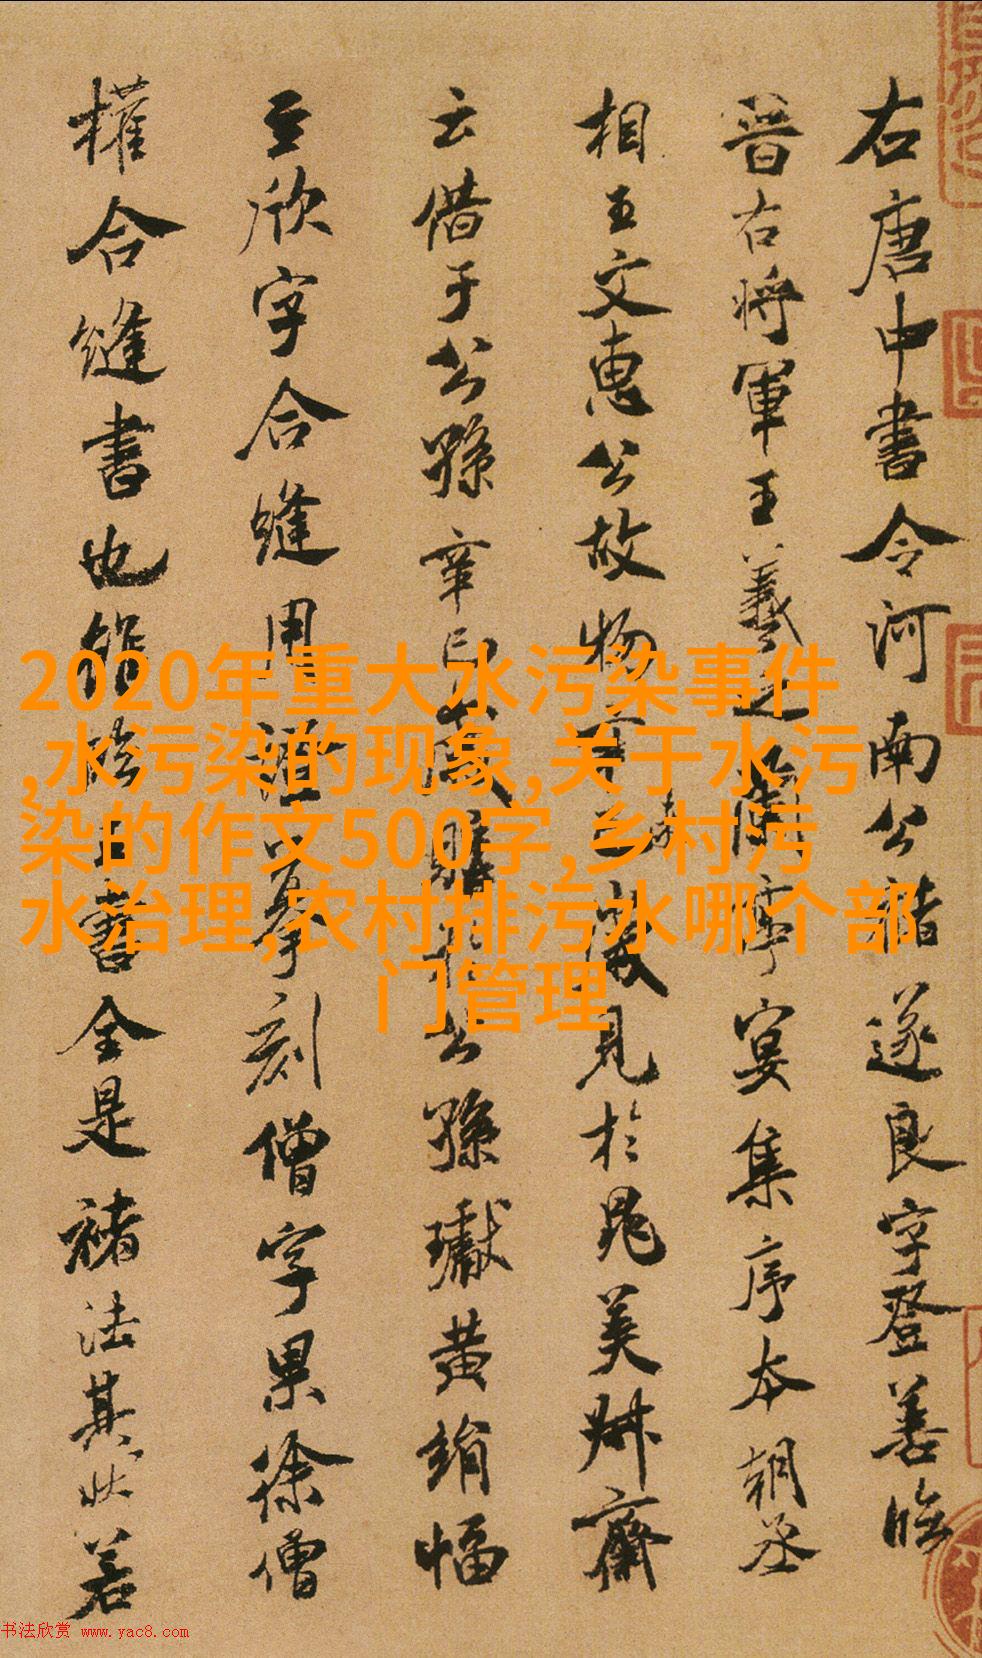 右唐中書令河南公褚遂良字登善臨
晉右將軍王羲之蘭亭宴集序本朝丞
相王文惠公故物辛未歲見於晁美叔齋
云借于公孫辛巳歲購於公孫瓛黃絹幅
至欣字合縫用證摹刻僧字果徐僧
權合縫書也雖臨王書全是褚法其狀若
2020年重大水污染事件
,水污染的现象,关于水污
染的作文500字,乡村污
水治理,农村排污水哪个部
门管理
书法欣赏 www.yac8.com